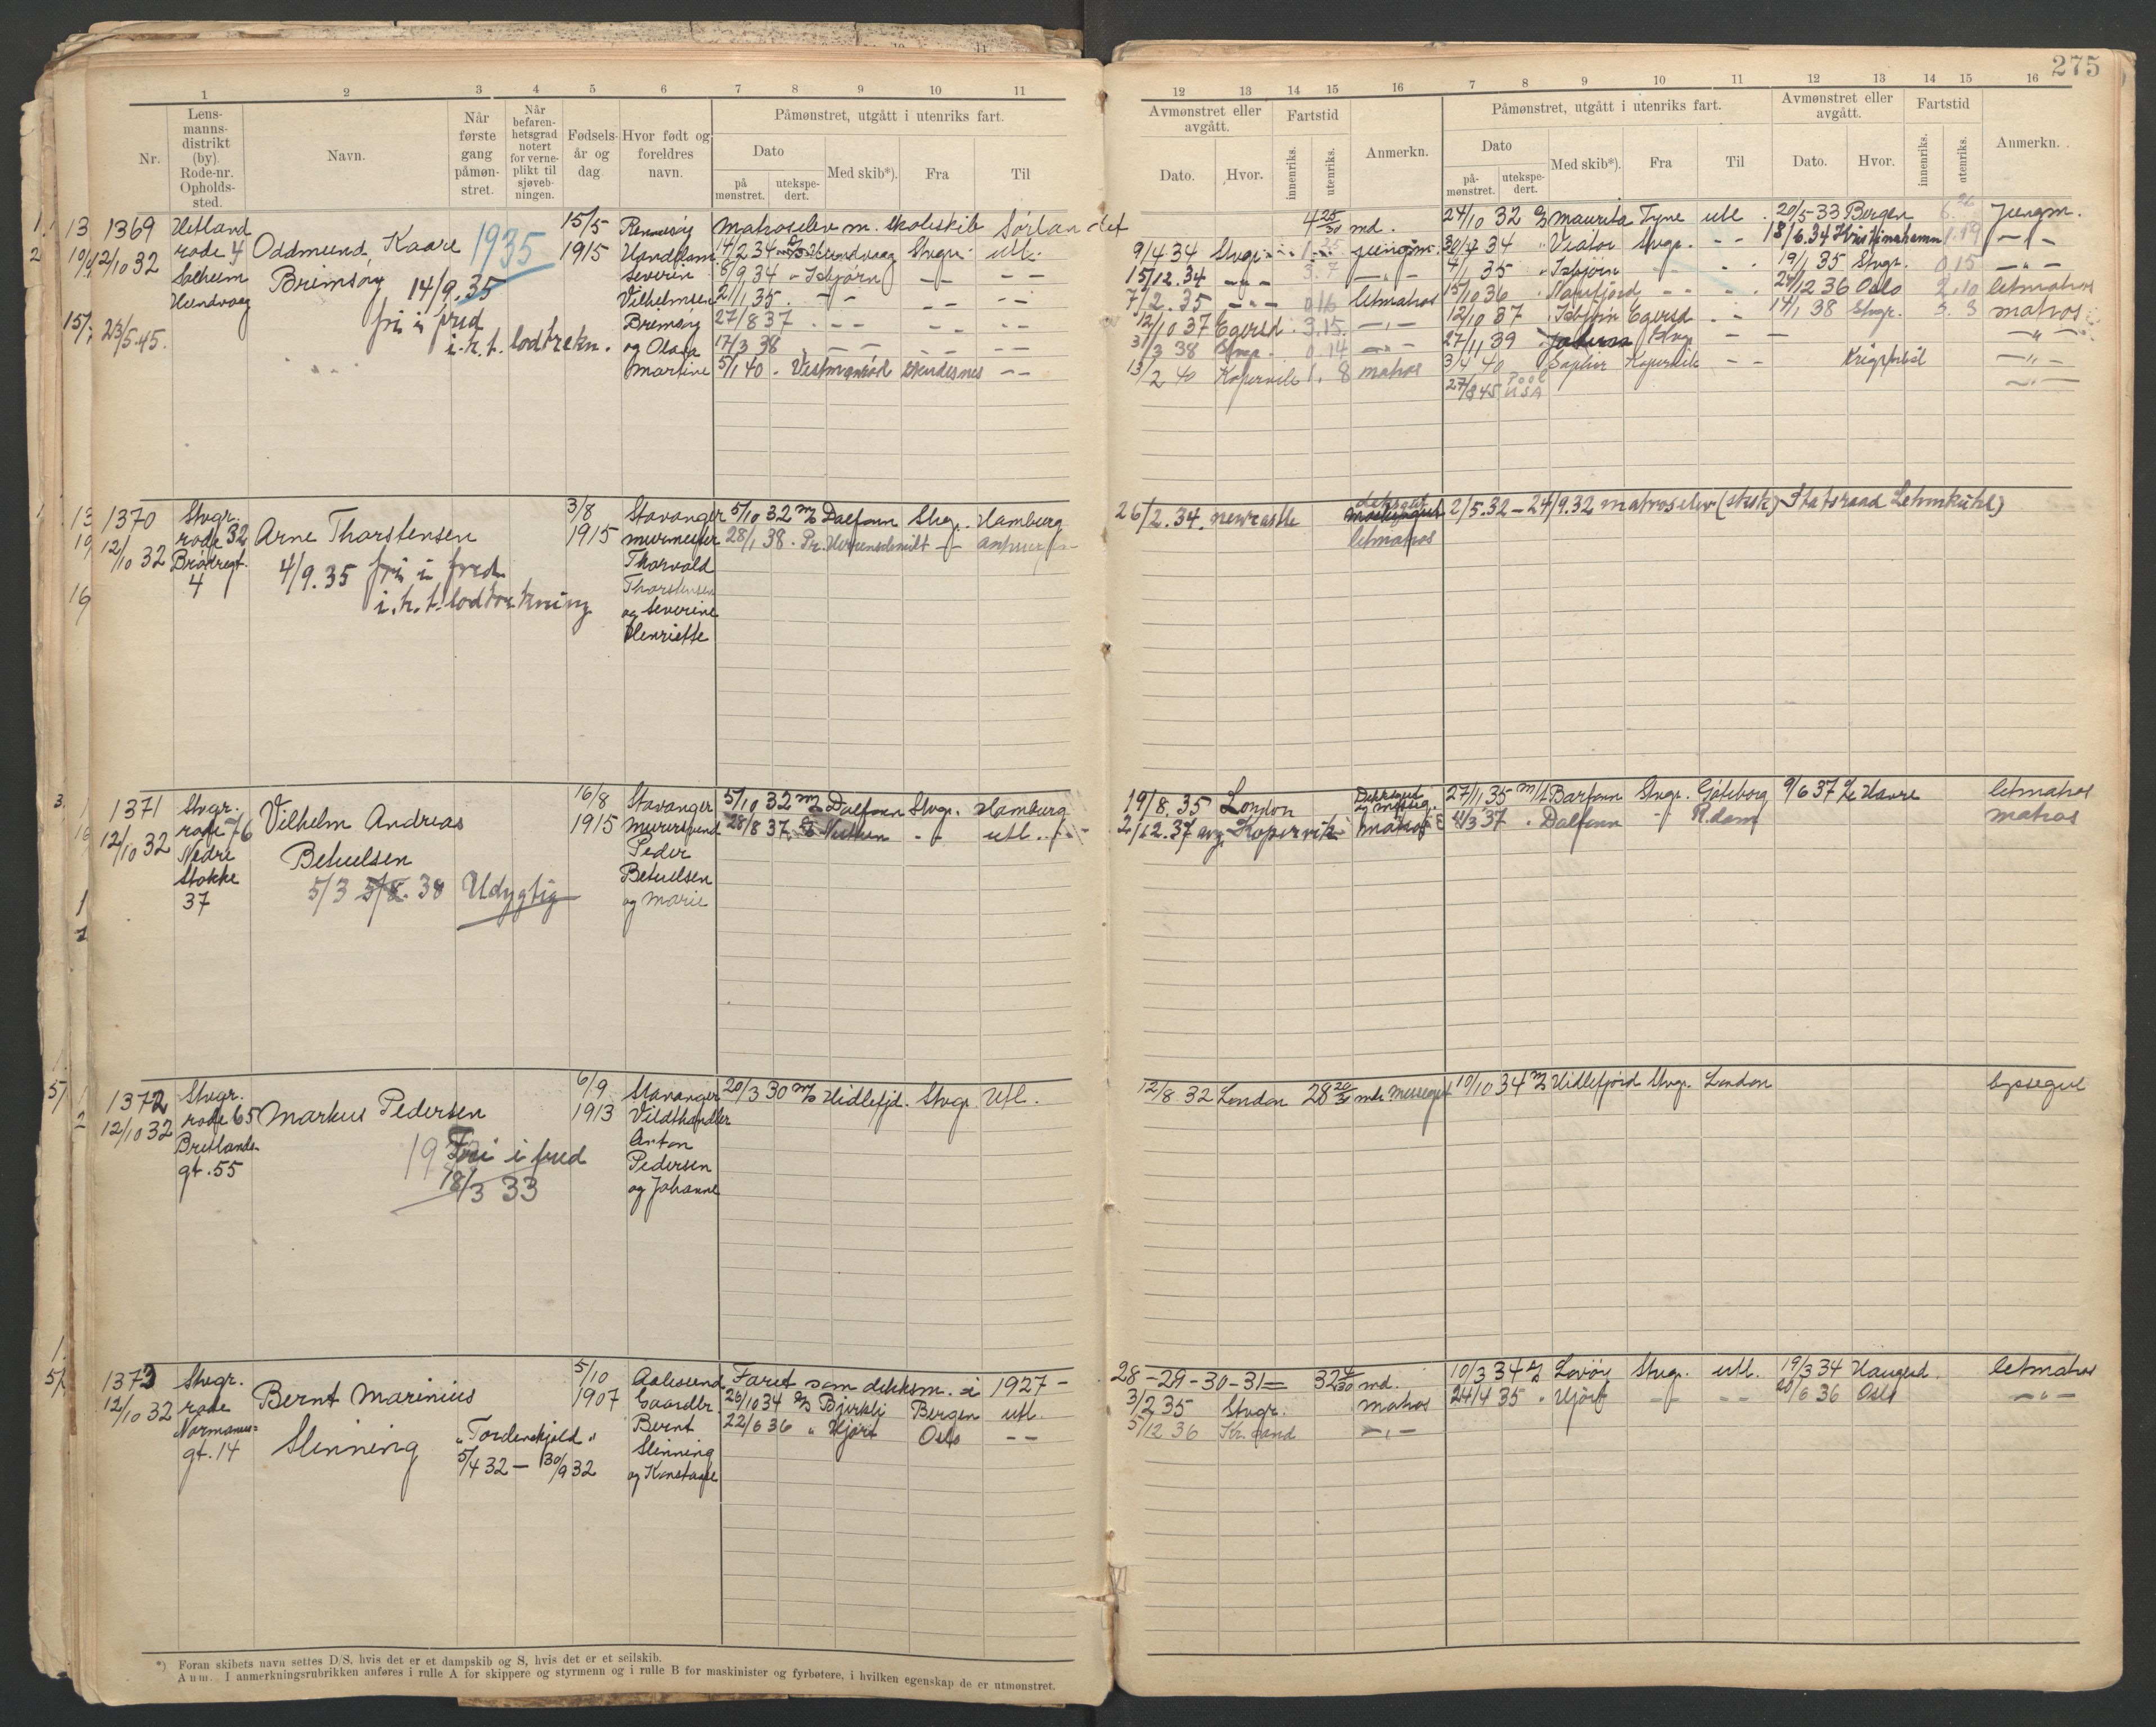 275
1 2 3 4 5 6 7 8 9 10 11
Nr.
Lens-
manns-
distrikt
(by).
Rode-nr.
Opholds-
sted.
Navn.
Når
første
gang
påmøn-
stret.
Når
befaren-
hetsgrad
notert
for verne-
plikt til
sjøveb-
ningen.
Fødsels-
år og
dag.
Hvor født og
foreldres
navn.
Påmønstret, utgått i utenriks fart.
Dato
på
mønstret.
utekspe-
dert.
Med skib*).
Fra
Til
12 13 14 15 16 7 8 9 10 11 12 13 14 15 16
Avmønstret eller
avgått.
Dato.
Hvor.
Fartstid
innenriks.
utenriks.
Anmerkn.
Påmønstret, utgått i utenriks fart.
Dato
på-
mønstret.
utekspe-
dert.
Med skib*).
Fra
Til
Avmønstret eller
avgått.
Dato.
Hvor.
Fartstid
innenriks.
utenriks.
Anmerkn.
1369
12/10 32
23/5.45.
Hetland
rode 4
Solheim
Hundvaag
Oddmund, Kaare
Brimsøy
1935
14/9.35
fri i fred
i.h.t. lodtrekn.
15/5
1915
Rennesøy
Severin
Vilhelmsen
Brimsøy
og Olava
Martine
Matroselev m. skoleskib Sørlandet
14/2 34 Hundvaag Stvgr. utl.
8/9 34 - Isbjørn
2/11 35
27/8 37
17/3 38
5/1 40 - Lindesnes
4 25/30 md.
9/4 34 Stvgr. jungm.
15/12.34
7/2.35 letmatros
12/10 37 Egersd. 3.15.
3/3 38 Stvgr. 0.14
13/2 40 Kopervik 1. 8 matros
24/10 32 Maurita Tyne utl. 20/5 33 Bergen Jungm.
34 Viator Stvgr. 18/6.34 Kristinehamn
4/1 35 Isbjørn 19/1 35 Stvgr. 0.15
15/10 36 24/12 36 Oslo 2.10 letmatros
12/10 37 Isbjørn Egersd 14/1 38 Stvgr. 3. 3 matros
27/11 39 Stvgr
3/4 40 Saphir Kopervik
27/8 45 Pool USA
1370
12/10 32
Stvgr.
rode 32
4
Arne Thorstensen
4/9.35 fri i fred
i.h.t. lodtrekning
3/8
1915
Stavanger
murmester
Thorvald
Thorstensen
og Severine
Henriette
5/10 32 M/S Dalfonn Stvgr. Hamburg
28/1 38
26/2.34. Newcastle
letmatros
2/5.32 - 24/9.32 matroselev (stsk) Statsraad Lehmkuhl)
1371
12/10 32
Stvgr.
rode 76
Nedre
Stokke
37
Vilhelm Andreas
Betuelsen
5/3 38 Udygtig
16/8
1915
Stavanger
Peder
Betuelsen
og Marie
5/10 32 M/S Dalfonn Stvgr. Hamburg
28/8 37 utl.
19/8.35 London
2/12.37 avg. Kopervik matros
27/1 35 M/T Barfonn Stvgr. Göteborg 9/6 37 Le Havre letmatros
37 Dalfonn R.dam matros
1372
12/10 32
Stvgr.
rode 65
Bretlands-
gt. 55
Markus Pedersen
Fri i fred
18/3 33
6/9
1913
Stavanger
Vildthandler
Anton
Pedersen
og Johanne
20/3 30 M/S Hidlefjd. Stvgr. Utl.
12/8 32 London 28 mdr messegut
10/10 34 M/S Hidlefjord Stvgr. London byssegut
1373
12/10 32
Stvgr.
rode
gt. 14
Bernt Marinius
Slinning
"Tordenskjold"
5/4 32 - 30/9 32
5/10
1907
Aalesund
Gaardbr
Bernt
Slinning
og
Faret som dekksm. i 1927 -
26/10 34 Bjerkli Bergen utl.
22/6 36 " Hjørt Oslo
28-29-30-31= 32 4/30 md.
3/2 35 Stvgr. matros
5/12 36 Kr.sand
10/3 34 Lovøy Stvgr. utl. 19/3 34 Haugesd. letmatros
24/4 35 " Hjørt 20/6 36 Oslo
*) Foran skibets navn settes D/S, hvis det er et dampskib og S, hvis det er et seilskib.
Anm. I anmerkningsrubrikken anføres i rulle A for skippere og styrmenn og i rulle B for maskinister og fyrbøtere, i hvilken egenskap de er utmønstret.